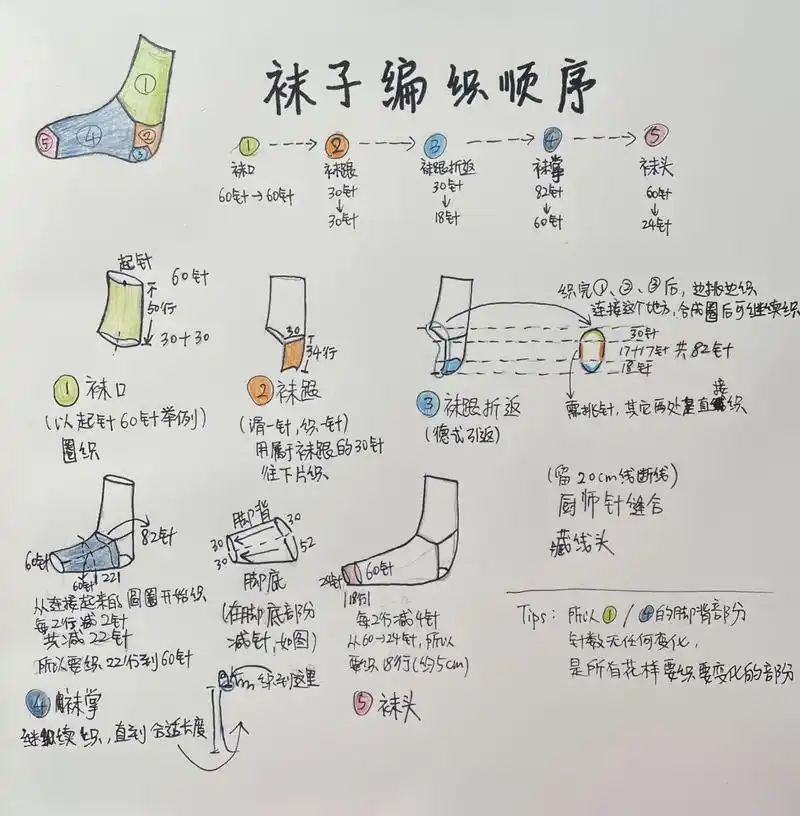 袜子编织顺序
① ② ③ ④ ⑤
① ---> ② ---> ③ ---> ④ ---> ⑤
袜口 袜跟 袜跟折返 袜掌 袜头
60针→60针 30针 30针 82针 60针
↓ ↓ ↓ ↓
30针 18针 60针 24针
起针 60针
50行
30+30
① 袜口
(以起针60针举例)
圈织
30
34行
② 袜跟
(滑一针,织一针)
用属于袜跟的30针
往下片织
织完①、②、③后,边挑边织
连接这个地方,合成圈后可继续织
30针
17+17针 共82针
18针
需挑针,其它两处是直接织
③ 袜跟折返
(德式引返)
60针
82针
60针 22行
从连接起来的圆圈开始织
每2行减2针
共减22针
所以要织22行到60针
④ 袜掌
继续织,直到合适长度
织到这里
脚背
30
30
30
52
脚底
(在脚底部分
减针,如图)
24针
60针
18行
每2行减4针
从60→24针,所以
要织18行(约5cm)
⑤ 袜头
(留20cm线断线)
厨师针缝合
藏线头
Tips: 所以①/④的脚背部分
针数无任何变化,
是所有花样要织要变化的部分